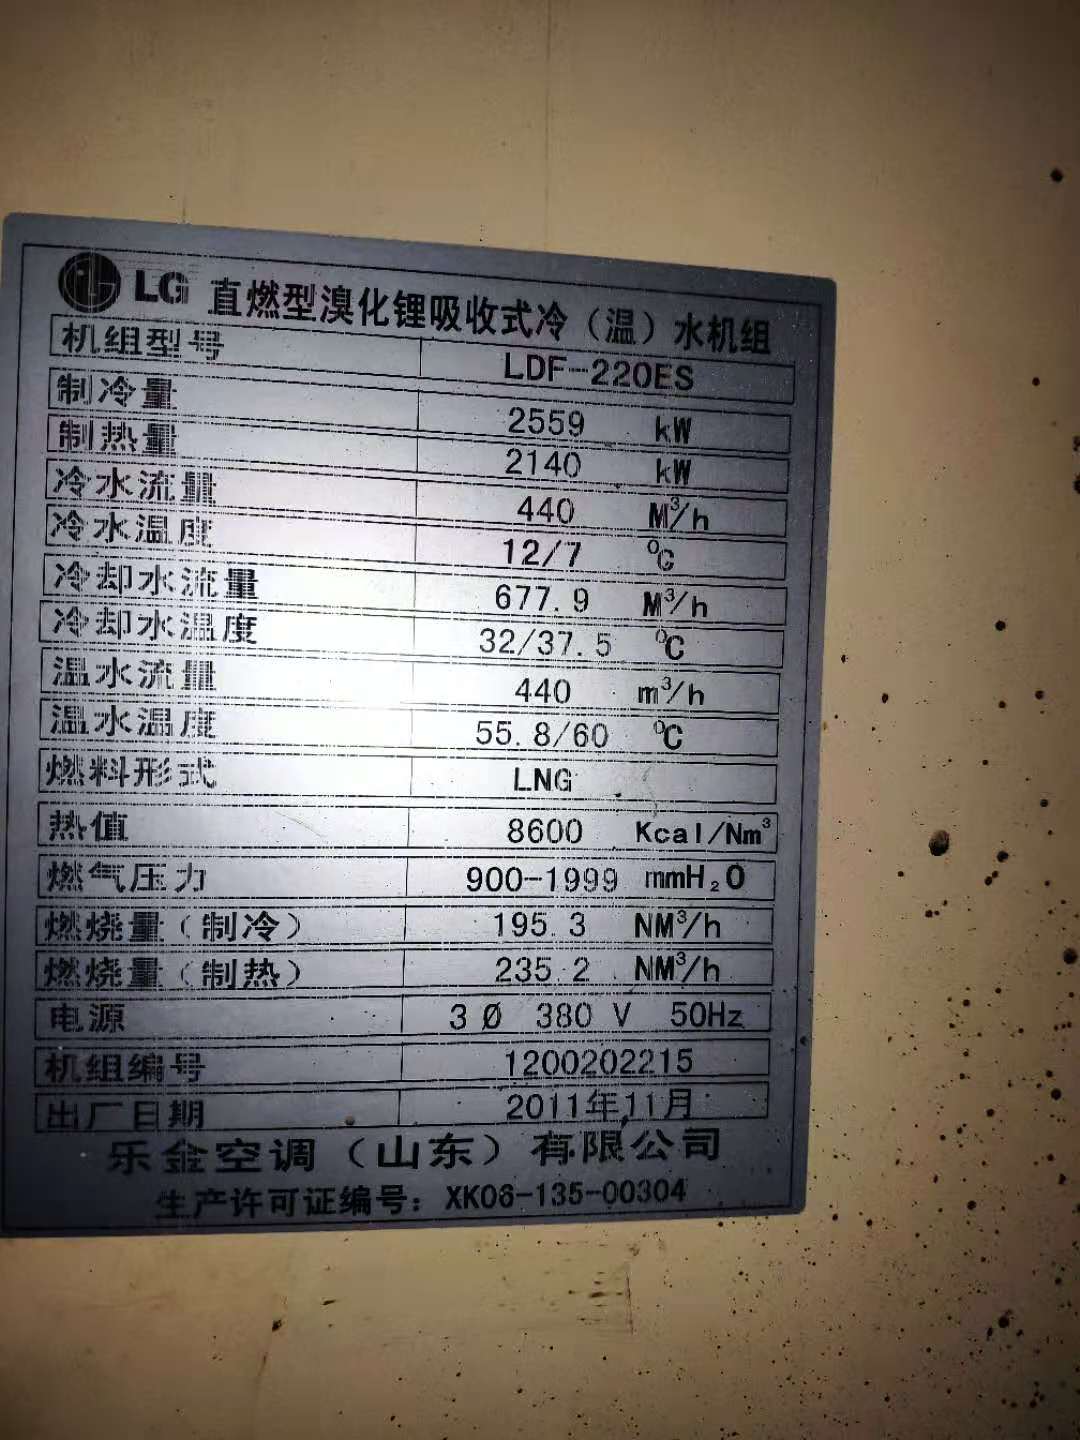 LG 直燃型溴化锂吸收式冷（温）水机组
机组型号 LDF-220ES
制冷量 2559 kW
制热量 2140 kW
冷水流量 440 M³/h
冷水温度 12/7 ⁰C
冷却水流量 677.9 M³/h
冷却水温度 32/37.5 ⁰C
温水流量 440 m³/h
温水温度 55.8/60 ⁰C
燃料形式 LNG
热值 8600 Kcal/Nm³
燃气压力 900-1999 mmH₂O
燃烧量（制冷） 195.3 NM³/h
燃烧量（制热） 235.2 NM³/h
电源 3 Ø 380 V 50Hz
机组编号 1200202215
出厂日期 2011年11月
乐金空调（山东）有限公司
生产许可证编号：XK06-135-00304